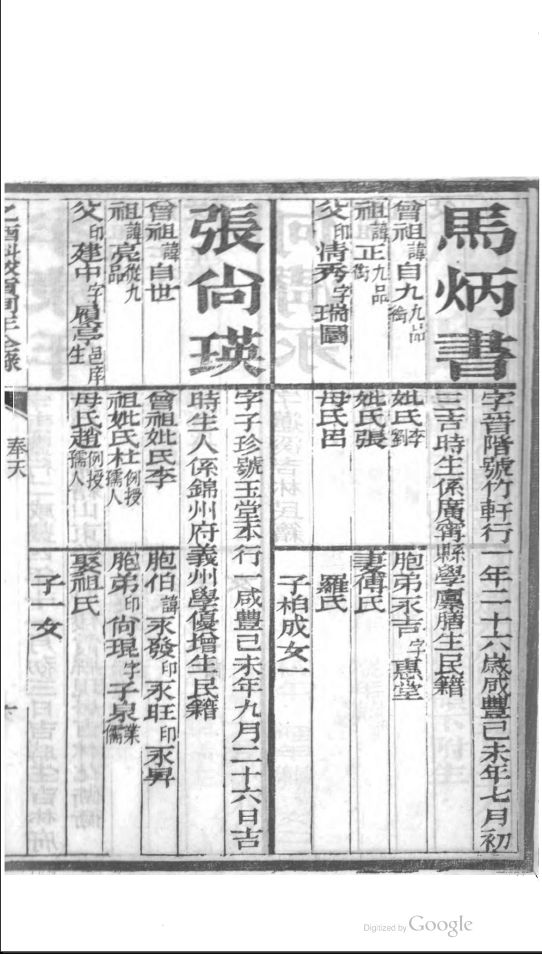 馬炳書
字晉階號竹軒行一年二十六歲咸豐己未年七月初
三吉時生係廣甯縣學廩膳生民籍
曾祖諱自九九品銜
妣氏李劉
胞弟永吉字惠堂
祖諱正九品銜
妣氏張
妻傅氏
父印清秀字瑞圖
母氏呂
羅氏
子柏成女一
張尙瑛
字子珍號玉堂本行一咸豐己未年九月二十六日吉
時生人係錦州府義州學優增生民籍
曾祖諱自世
曾祖妣氏李
胞伯諱永發印永旺印永昇
祖諱亮從九品
祖妣氏杜例授孺人
胞弟印尙琨字子泉業儒
父印建中字履亭邑庠生
母氏趙例授孺人
娶祖氏
子一女
乙酉科校貢同年全錄
奉天
六
Digitized by Google